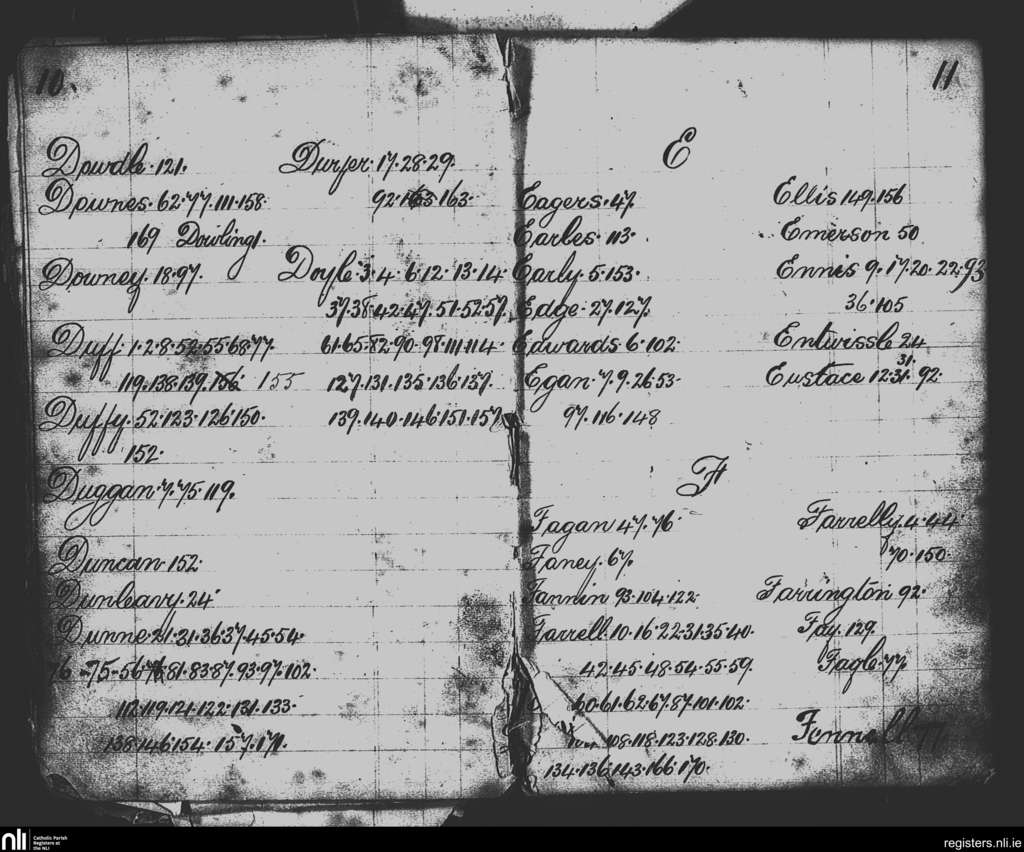 10.
Dowdle. 121.
Downes. 62. 77. 111. 158.
169 Dowling 1.
Downey. 18. 97.
Duff. 1. 2. 8. 52. 55 68. 77.
119. 138. 139. 156 155
Duffy. 52. 123. 126. 150.
152.
Duggan. 7. 75. 119.
Duncan. 152.
Dunleavy. 24
Dunne 21. 31. 36. 37. 45. 54.
76 - 75 - 56 81. 83. 87. 93. 97. 102.
112. 119. 121. 122. 131. 133.
138. 146. 154. 157. 171.
17. 28. 29.
92. 163. 163.
Doyle. 3. 4. 6. 12. 13. 14
37. 38. 42. 47. 51. 52. 57.
61. 65. 82. 90. 98. 111. 114.
127. 131. 135. 136. 137.
139. 140. 146. 151. 157
11
E
Eagers. 47.
Earles. 113.
Early. 5. 153.
Edge. 27. 127.
Edwards. 6. 102.
Egan. 7. 9. 26. 53.
97. 116. 148
Ellis 149. 156
Emerson 50
Ennis 9. 17. 20. 22. 93
36. 105
Entwissle 24
31.
Eustace 12. 31. 92.
F
Fagan 47. 76.
Faney. 67.
Fannin 93. 104. 122.
Farrell. 10. 16. 22. 31. 35. 40.
42. 45. 48. 54. 55. 59.
60. 61. 62. 67. 87. 101. 102.
108. 118. 123. 128. 130.
134. 136. 143. 166. 170.
Farrelly. 4. 44
70. 150.
Farrington 92.
Fay. 129.
Fagle. 77
Fennell 77
nli Catholic Parish
Registers at
the NLI
registers.nli.ie